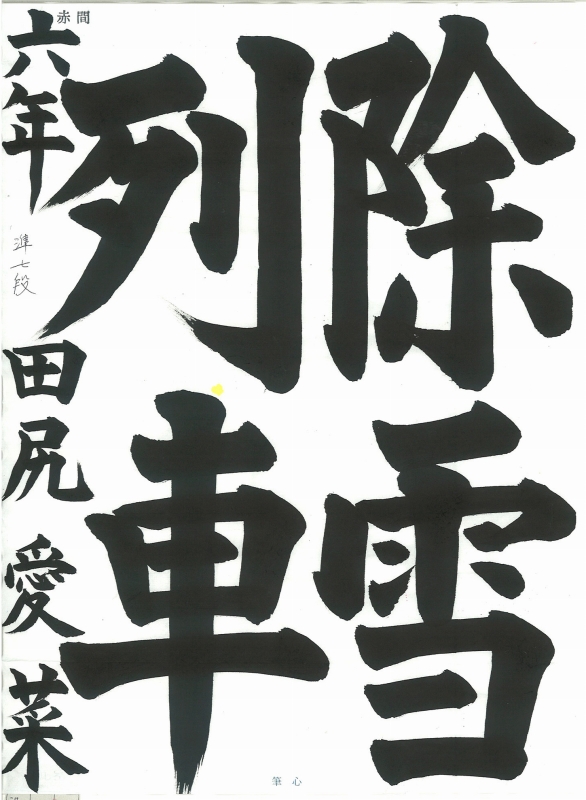 除雪
列車
赤間
六年
準七段
田尻愛菜
心筆